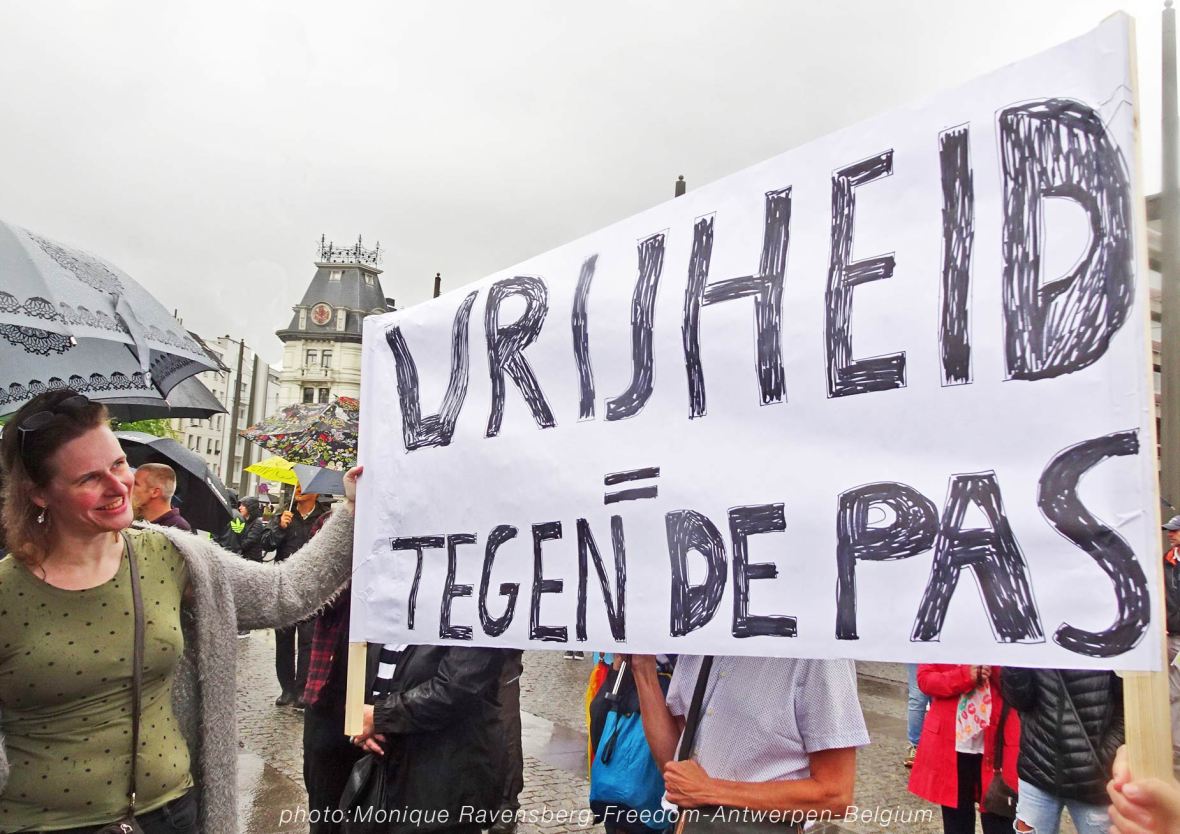 VRIJHEID
=
TEGEN DE PAS
photo:Monique Ravensberg-Freedom-Antwerpen-Belgium